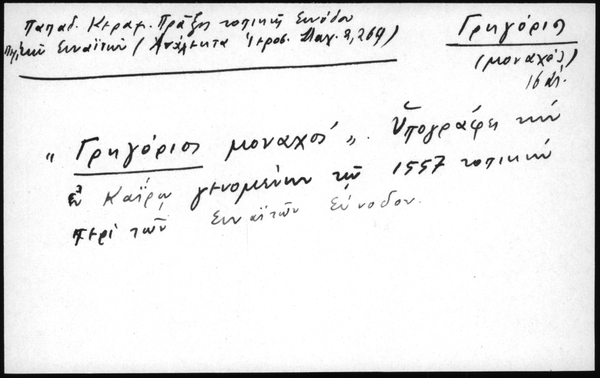 Παπαδ. Κεραμ. Πρᾶξις τοπικῆς Συνόδου
περὶ τῶν Σιναϊτῶν (Ἀνάλεκτα Ἱεροσ. Σταχ. 2,269)
Γρηγόριος
(μοναχός)
16 αἰ.
"Γρηγόριος μοναχός". Ὑπογράφει τὴν
ἐν Καΐρῳ γενομένην τῷ 1557 τοπικὴν
περὶ τῶν Σιναϊτῶν Σύνοδον.